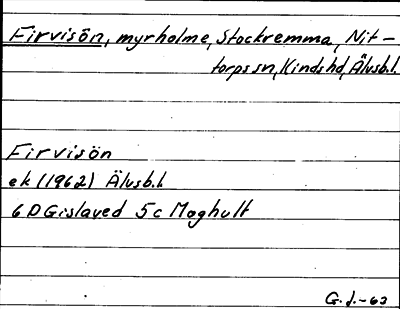 Firvisön, myrholme, Stockremma, Nit-
torps sn, Kinds hd, Älvsb.l.
Firvisön
ek (1962) Älvsb.l.
6 D Gislaved 5 c Moghult
G.J.-63